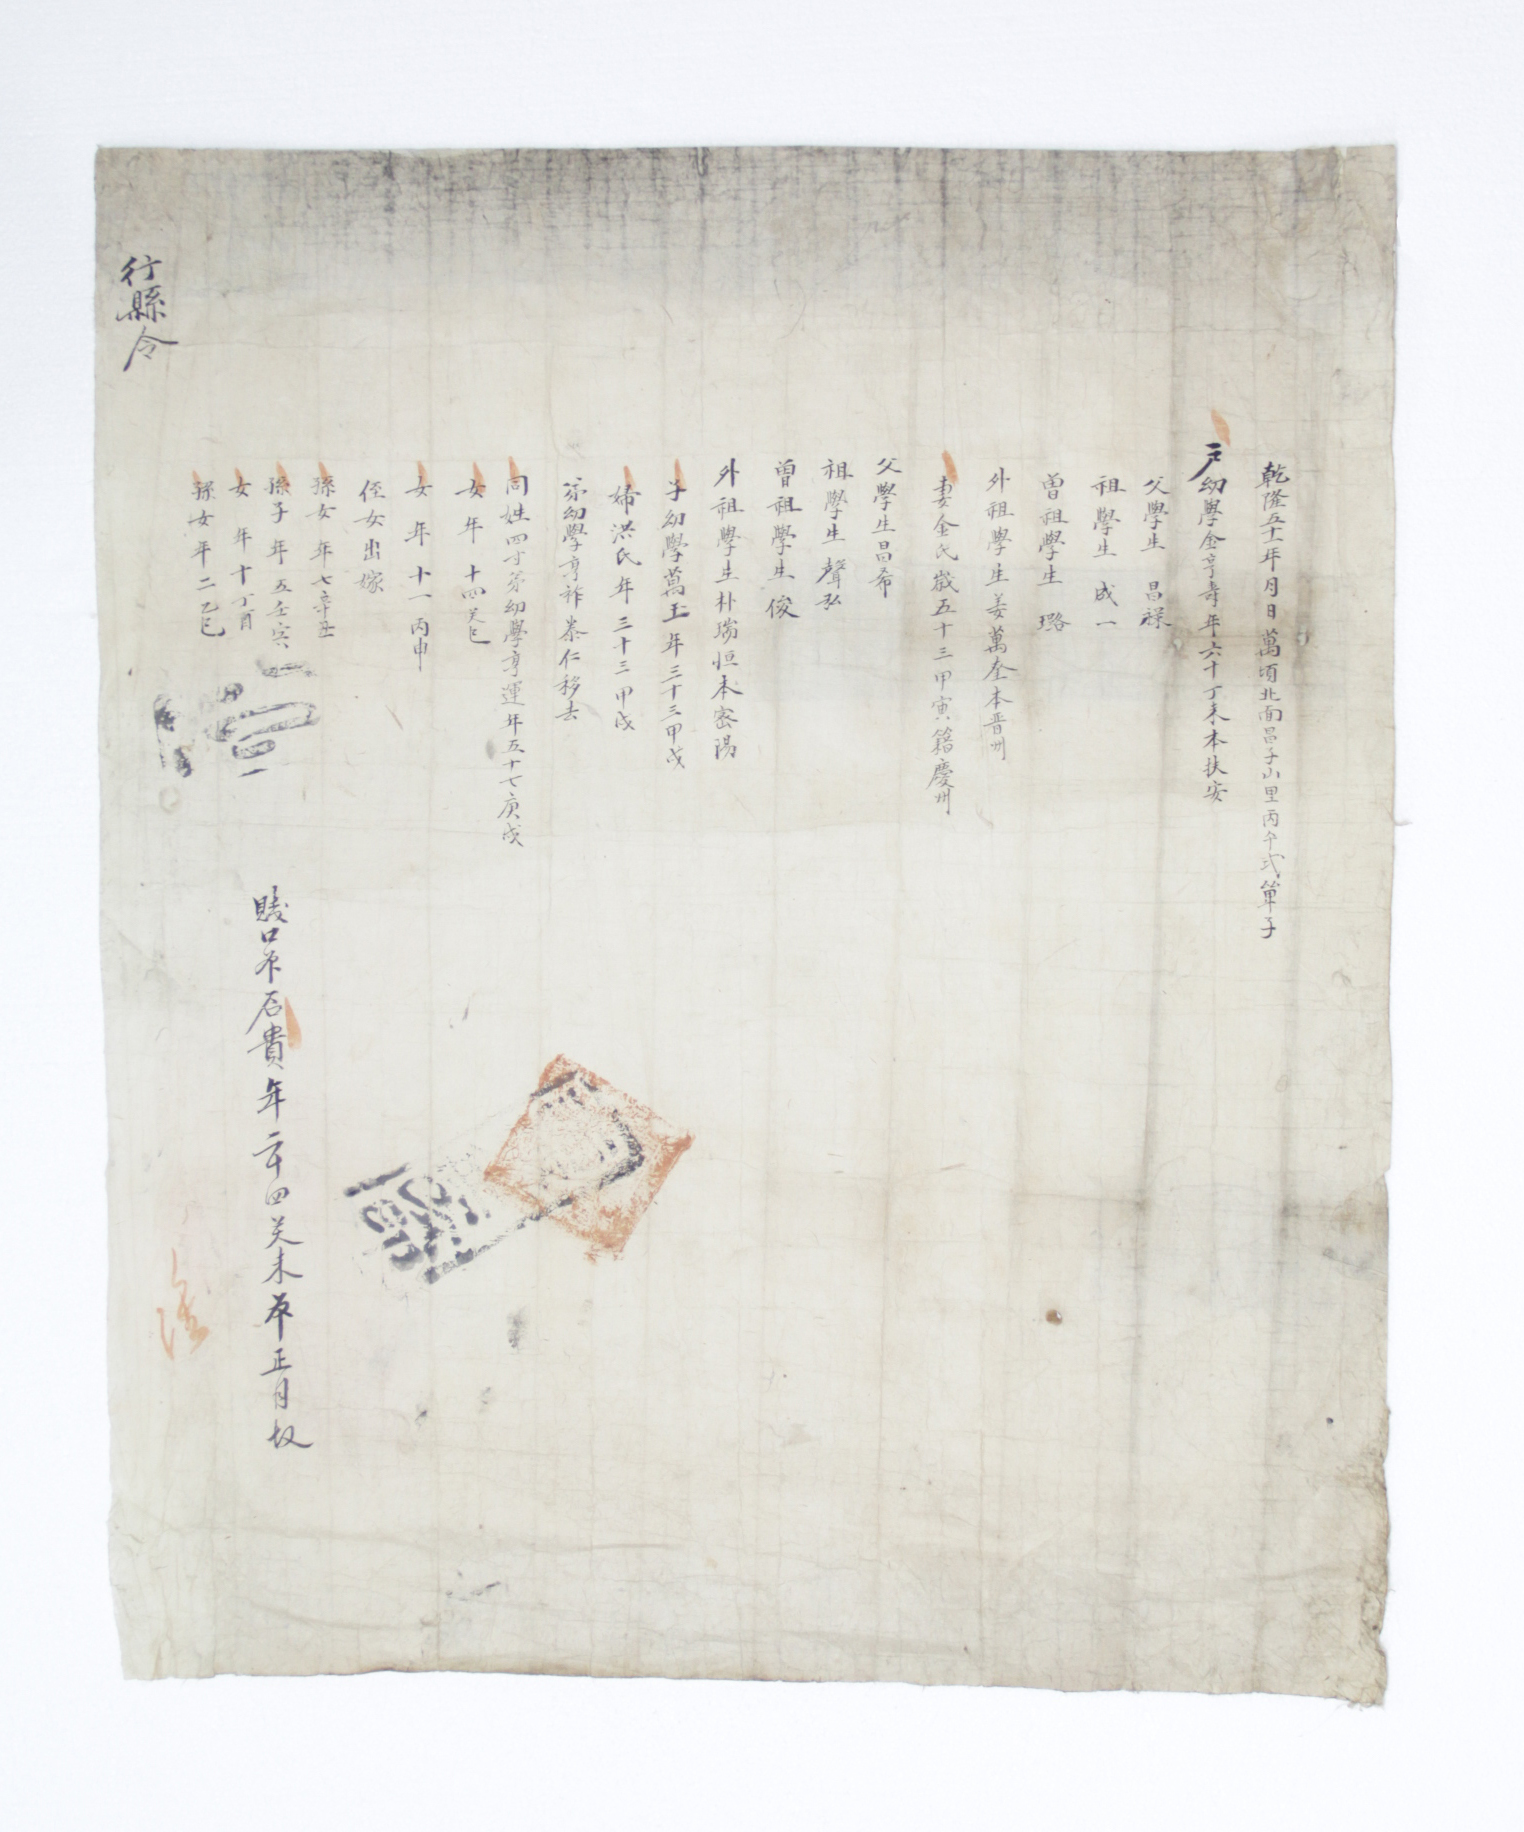 乾隆五十一年月日萬頃北面昌子山里丙午式單子
戶幼學金亨壽年六十丁未本扶安
父學生昌祿
祖學生成一
曾祖學生璐
外祖學生姜萬奎本晋州
妻金氏歲五十三甲寅籍慶州
父學生昌希
祖學生聲弘
曾祖學生俊
外祖學生朴瑞恒本密陽
子幼學萬玉年三十三甲戌
婦洪氏年三十三甲戌
第幼學亨祚泰仁移去
同姓四寸弟幼學亨運年五十七庚戌
女年十四癸巳
女年十一丙申
侄女出嫁
孫女年七辛丑
孫子年五壬寅
女年十丁酉
孫女年二乙巳
賤口婢石貴年二十四癸未
正月
行縣令